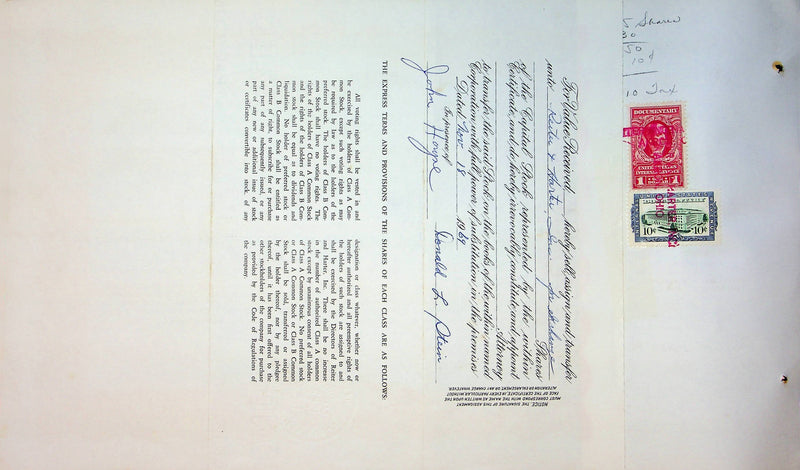 5 Shares
50
10¢
10 Tax
DOCUMENTARY
1
UNITED STATES
INTERNAL REVENUE
10c 10c
OHIO
For Value Received, hereby sell, assign and transfer
unto Reiter & Harter, Inc. for exchange
Shares
of the Capital Stock represented by the within
Certificate, and do hereby irrevocably constitute and appoint
Attorney
to transfer the said Stock on the books of the within named
Corporation with full power of substitution in the premises.
Dated Nov. 18 1964
In presence of
Donald L. Stein
John Hoyne
NOTICE. THE SIGNATURE OF THIS ASSIGNMENT
MUST CORRESPOND WITH THE NAME AS WRITTEN UPON THE
FACE OF THE CERTIFICATE, IN EVERY PARTICULAR WITHOUT
ALTERATION OR ENLARGEMENT, OR ANY CHANGE WHATEVER.
THE EXPRESS TERMS AND PROVISIONS OF THE SHARES OF EACH CLASS ARE AS FOLLOWS:
All voting rights shall be vested in and
be exercised by the holders of Class A Com-
mon Stock, except such voting rights as may
be required by law as to the holders of the
preferred stock. The holders of Class B Com-
mon Stock shall have no voting rights. The
rights of the holders of Class A Common Stock
and the rights of the holders of Class B Com-
mon stock shall be equal as to dividends and
liquidation. No holder of preferred stock or
Class B Common Stock shall be entitled as
a matter of right, to subscribe for or purchase
any part of any subsequently issued, or any
part of any new or additional issue of stock
or certificates convertible into stock of any
designation or class whatever, whether now or
hereafter authorized and all preemptive rights of
the holders of such stock are assigned to and
shall be exercised by the Directors of Reiter
and Harter, Inc. There shall be no increase
in the number of authorized Class A common
stock except by unanimous consent of all holders
of Class A Common Stock. No preferred stock
or Class A Common Stock or Class B Common
Stock shall be sold, transferred or assigned
by the holder thereof, nor by any pledgee
thereof, until it has been first offered to the
other stockholders of the company for purchase
as provided by the Code of Regulations of
the company.